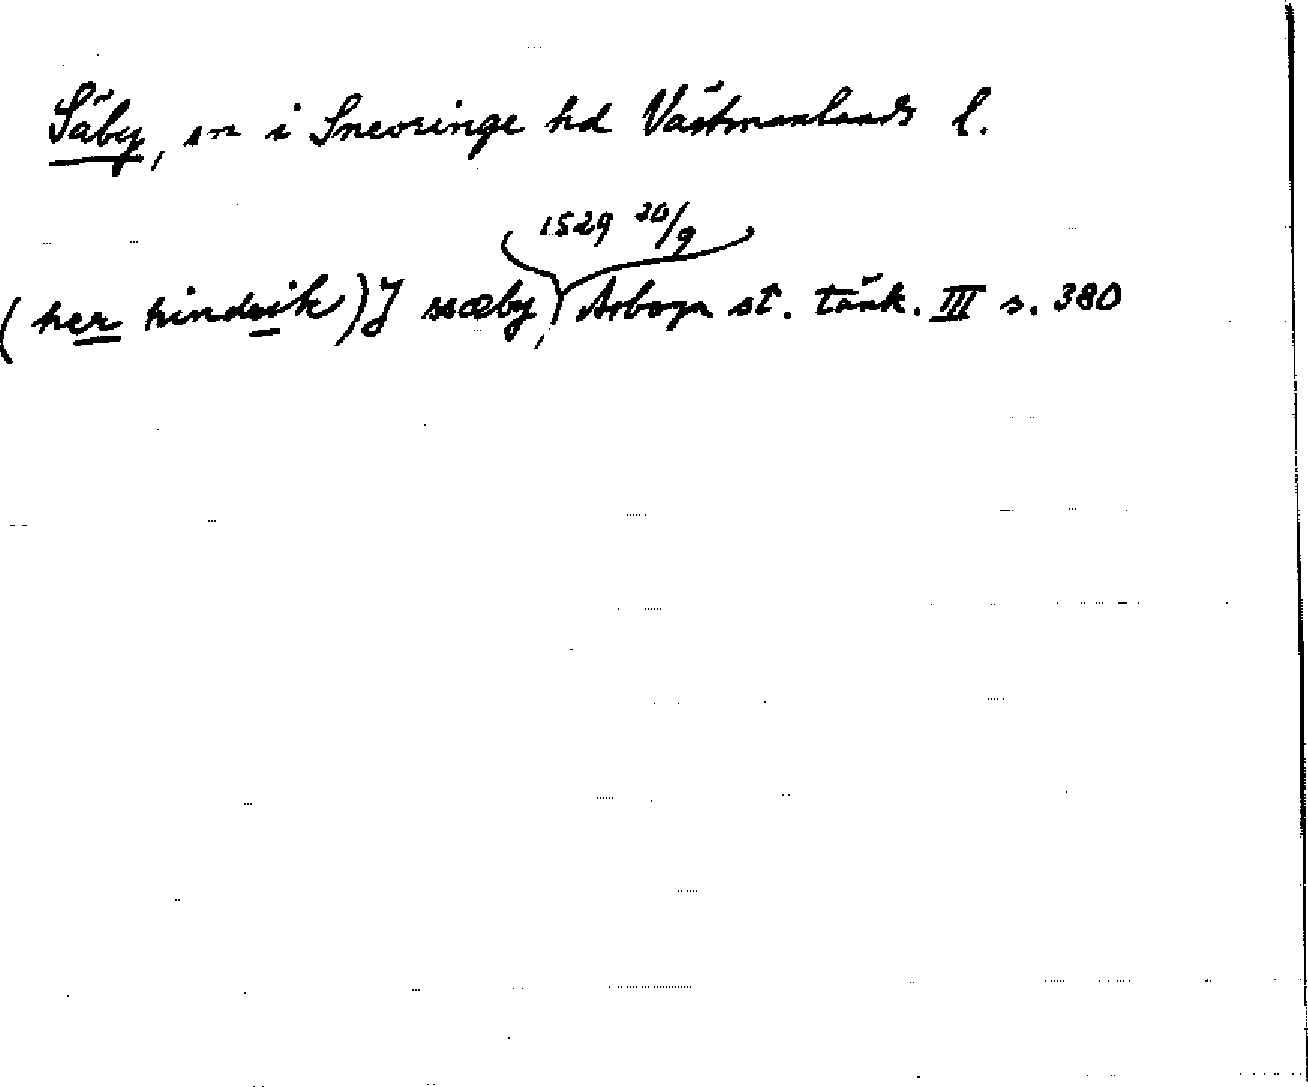 Säby, sn i Snevringe hd Västmanlands l.
1529 20/9
(her hindrik) J sæby, Arboga st. tänk. III s. 380